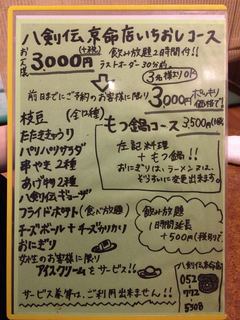 八剣伝 京命店いちおしコース
お一人様 3,000円(+税) 飲み放題2時間付!!
ラストオーダー30分前
3名様よりOK
前日までにご予約のお客様に限り
3,000円ポッキリ価格で!
枝豆 (全12種)
たたききゅうり
パリパリサラダ
串やき2種
あげ物2種
八剣伝ギョーザ
フライドポテト(食べ放題)
チーズボール+チーズちりかり
おにぎり
女性のお客様に限り
アイスクリームをサービス!!
もつ鍋コース 3,500円(税別)
左記料理
+もつ鍋!!
おにぎりは、ラーメン又は、
ぞうすいに変更出来ます。
飲み放題
1時間延長
+500円(税別)で
サービス券等は、ご利用出来ません!!
八剣伝京命店
052
772
5308